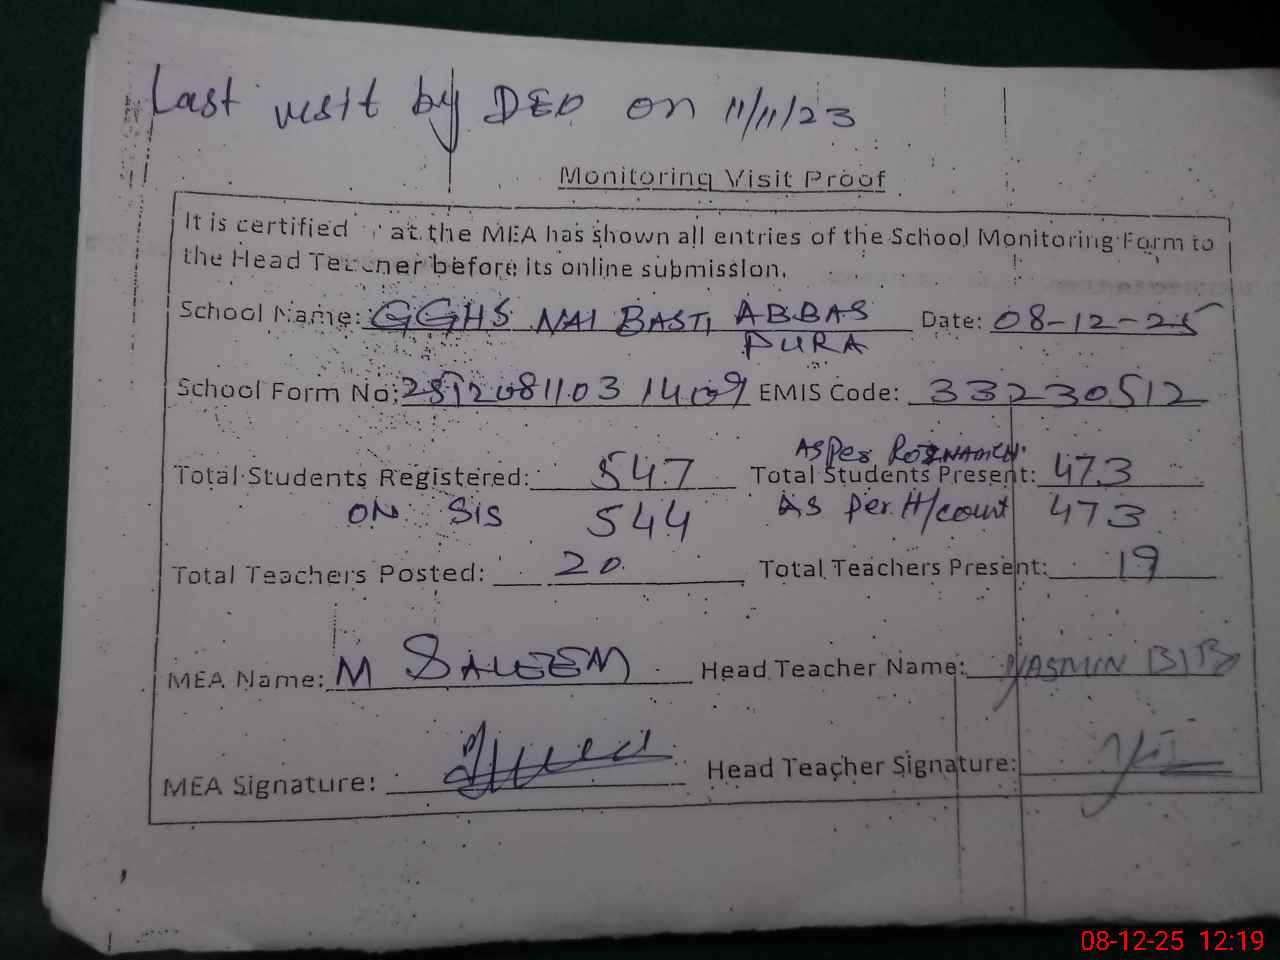 Last visit by DEO on 11/11/23
Monitoring Visit Proof
It is certified at the MEA has shown all entries of the School Monitoring Form to
the Head Teacher before its online submission.
School Name: GGHS NAI BASTI ABBAS Date: 08-12-25
PURA
School Form No: EMIS Code: 33230512
As Per
Total Students Registered: 547 Total Students Present: 473
ON SIS 544 As per H/count 473
Total Teachers Posted: 20 Total Teachers Present: 19
MEA Name: M SALEEM Head Teacher Name: YASMIN BIBI
MEA Signature: Head Teacher Signature:
08-12-25 12:19